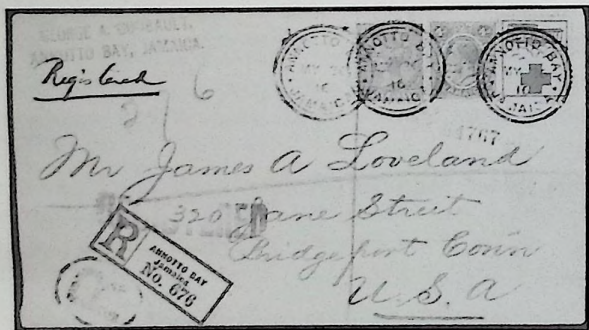 GEORGE A. GOUBAULT,
ANNOTTO BAY, JAMAICA.
Registered
ANNOTTO BAY
MY
16
JAMAICA
ANNOTTO BAY
16
JAMAICA
ANNOTTO BAY
MY
16
JAMAICA
2/6
Mr James A Loveland
REGISTERED
320 Lane Street
Bridgeport Conn
U. S. A
R
ANNOTTO BAY
Jamaica
No. 676